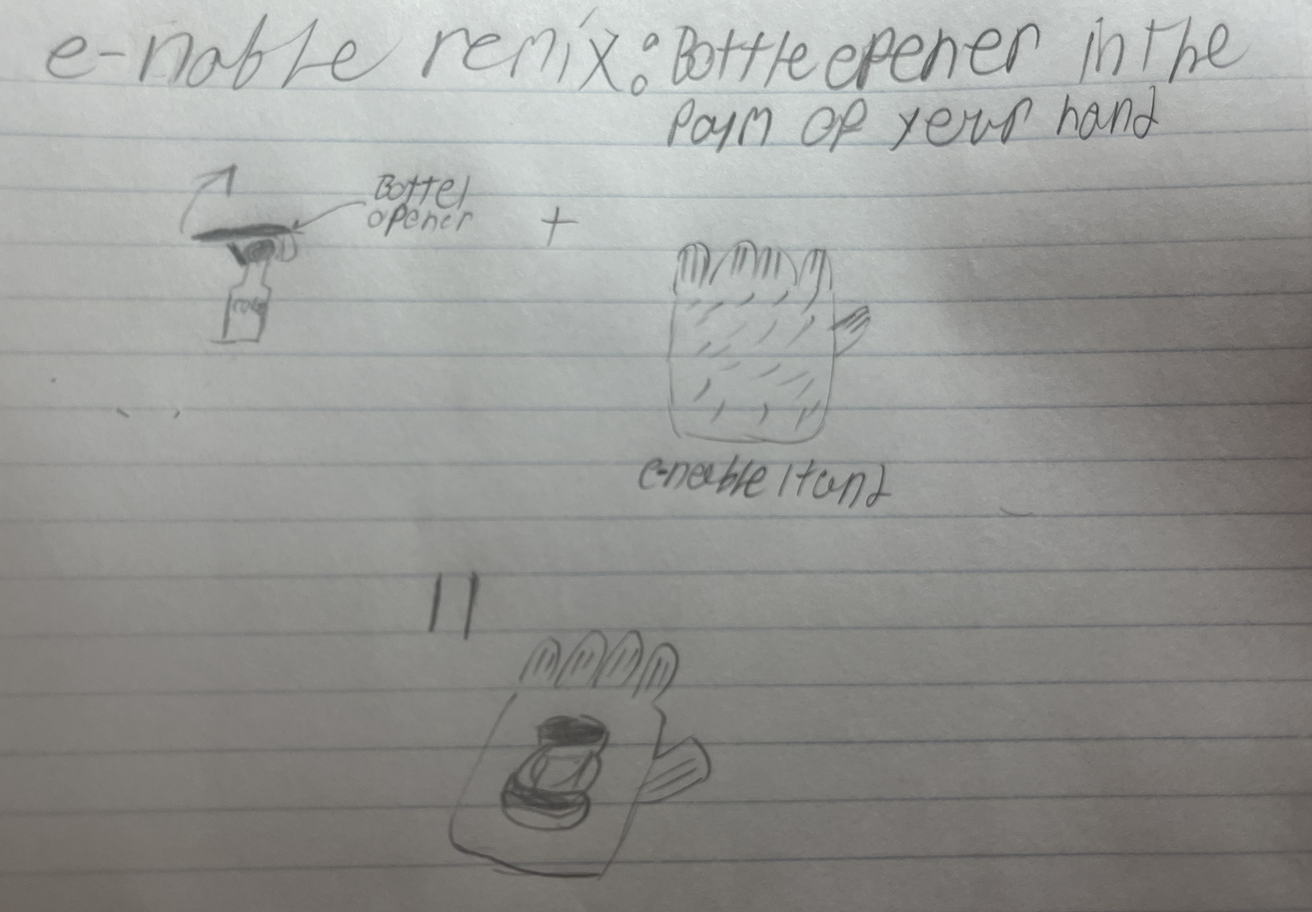 e-nable remix: Bottle opener in the
Palm of your hand
Bottel
opener
+
e-neable Hand